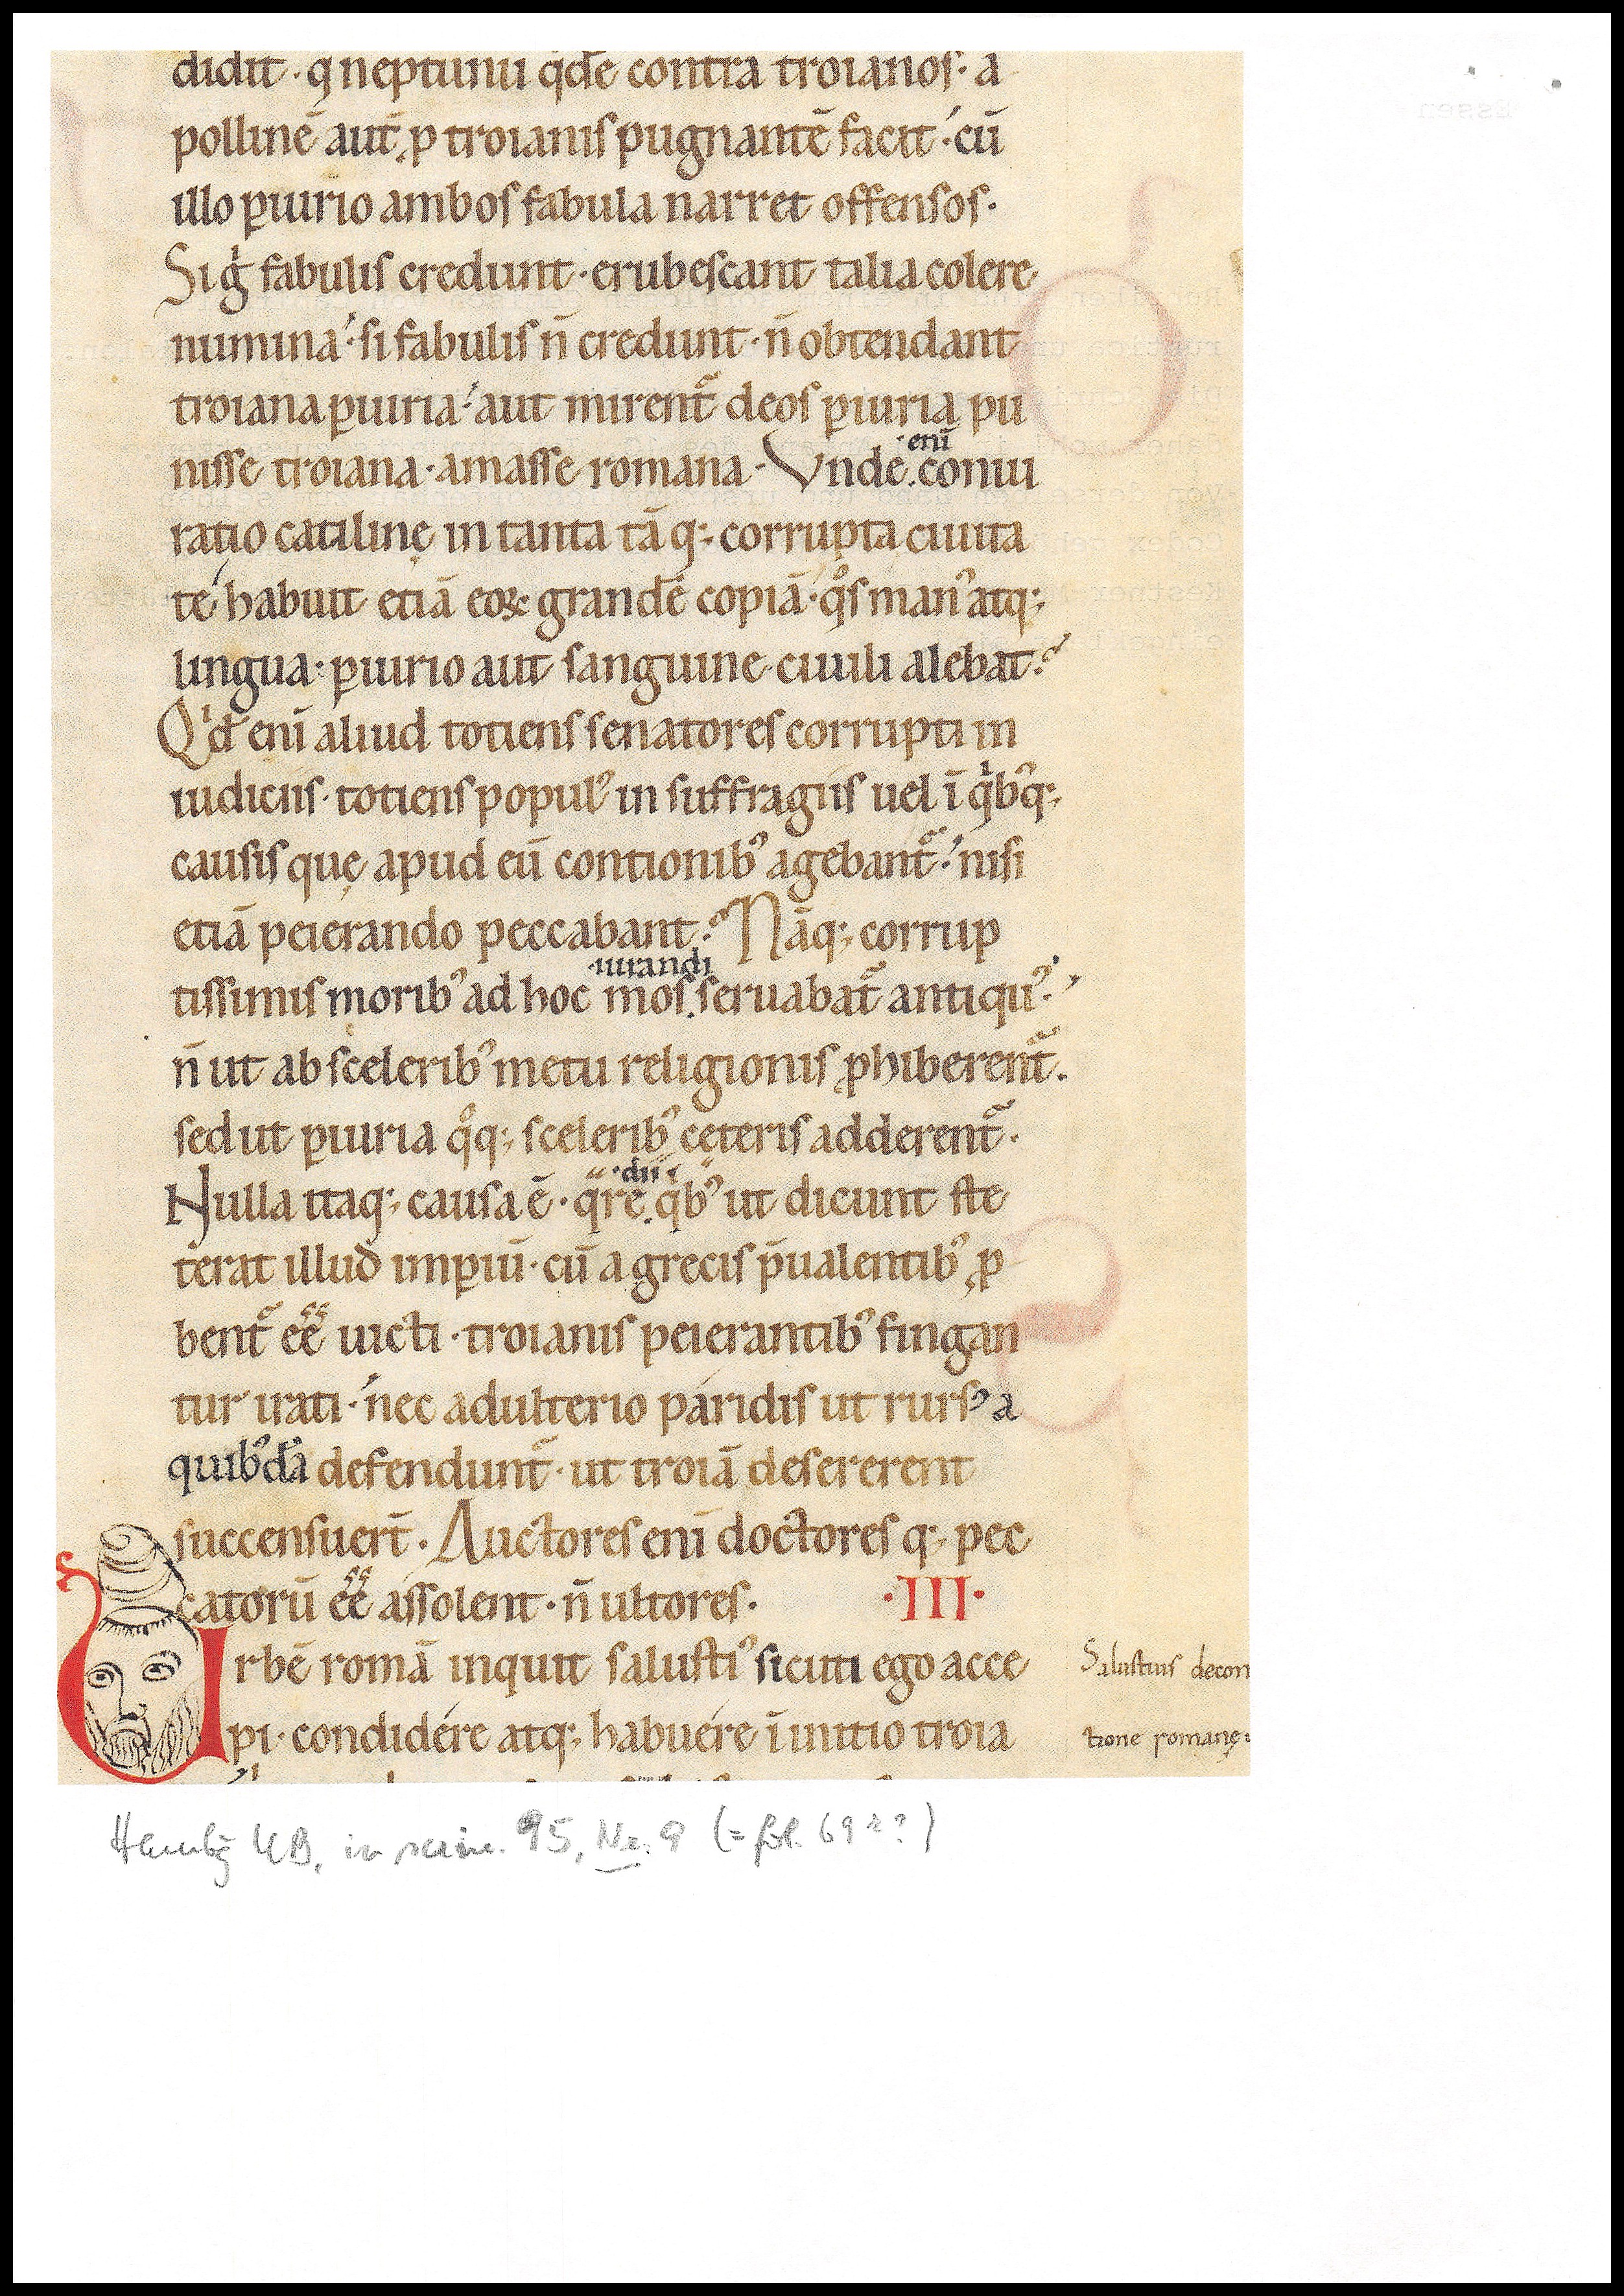 didit · q neptunū qdē contra troianos · a
pollinē aut̄ ꝓ troianis pugnantē facit · cū
illo ꝑiurio ambos fabula narret offensos ·
Si gͥ fabulis credunt · erubescant talia colere
numina · si fabulis n̄ credunt · n̄ obtendant
troiana ꝑiuria · aut mirent᷑ deos ꝑiuria pu
nisse troiana · amasse romana · Vnde · eni͂ coniu
ratio catilinę in tanta tāq; corrupta ciuita
te habuit etiā eoꝝ grandē copiā · qͦs manꝰ atq;
lingua · ꝑiurio aut sanguine ciuili alebat ?
Qͥd eni͂ aliud totiens senatores corrupti in
iudiciis · totiens populꝰ in suffragiis uel ī qͥbꝰq;
causis quę apud eū contionibꝰ agebant᷑ · nisi
etiā peierando peccabant ? Nāq; corrup
tissimis moribꝰ ad hoc mos · iurandi seruabat᷑ antiquꝰ ·
n̄ ut ab sceleribꝰ metu religionis ꝓhiberent᷑ .
sed ut ꝑiuria qͦq; sceleribꝰ cęteris adderent᷑ .
Nulla itaq; causa ē · qᷓre · dii qͥbꝰ ut dicunt ste
terat illud imꝑiū · cū a grecis p̄ualentibꝰ ꝓ
bent᷑ eē uicti · troianis peierantibꝰ fingan
tur irati · nec adulterio paridis ut rursꝰ a
quibꝰdā defendunt᷑ · ut troiā desererent
succensuer̄t . Auctores eni͂ doctores q; pec
catorū eē assolent · n̄ ultores · · III ·
Urbē romā inquit salustiꝰ sicuti ego acce
pi · condidere atq; habuere īinitio troia
Salustius decon
tione romanę
Hambg UB, in scrin. 95, Nr. 9 (= fol. 69r?)